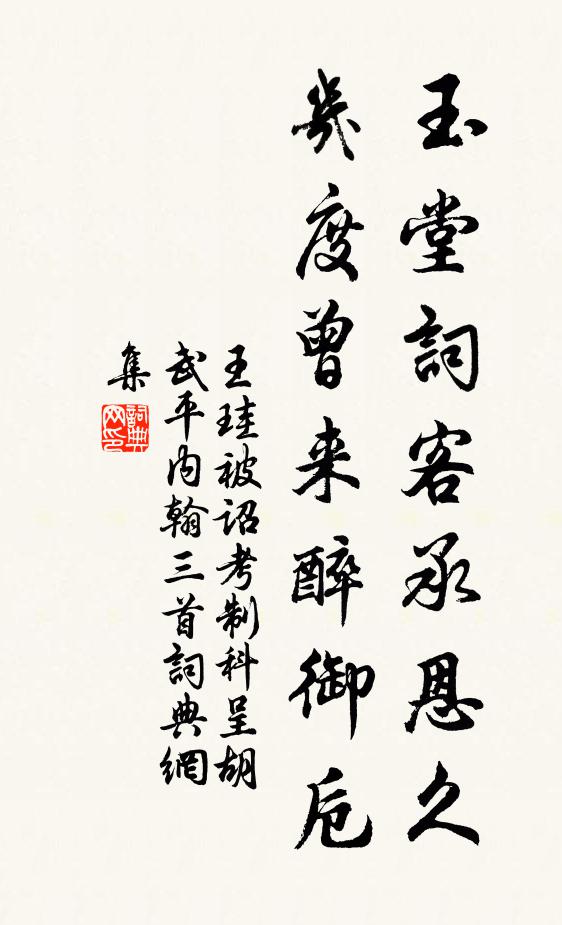 玉堂詞客承恩久
幾度曾来醉御卮
王珪被詔考制科呈胡
武平内翰三首詞典網
集
詞典网印